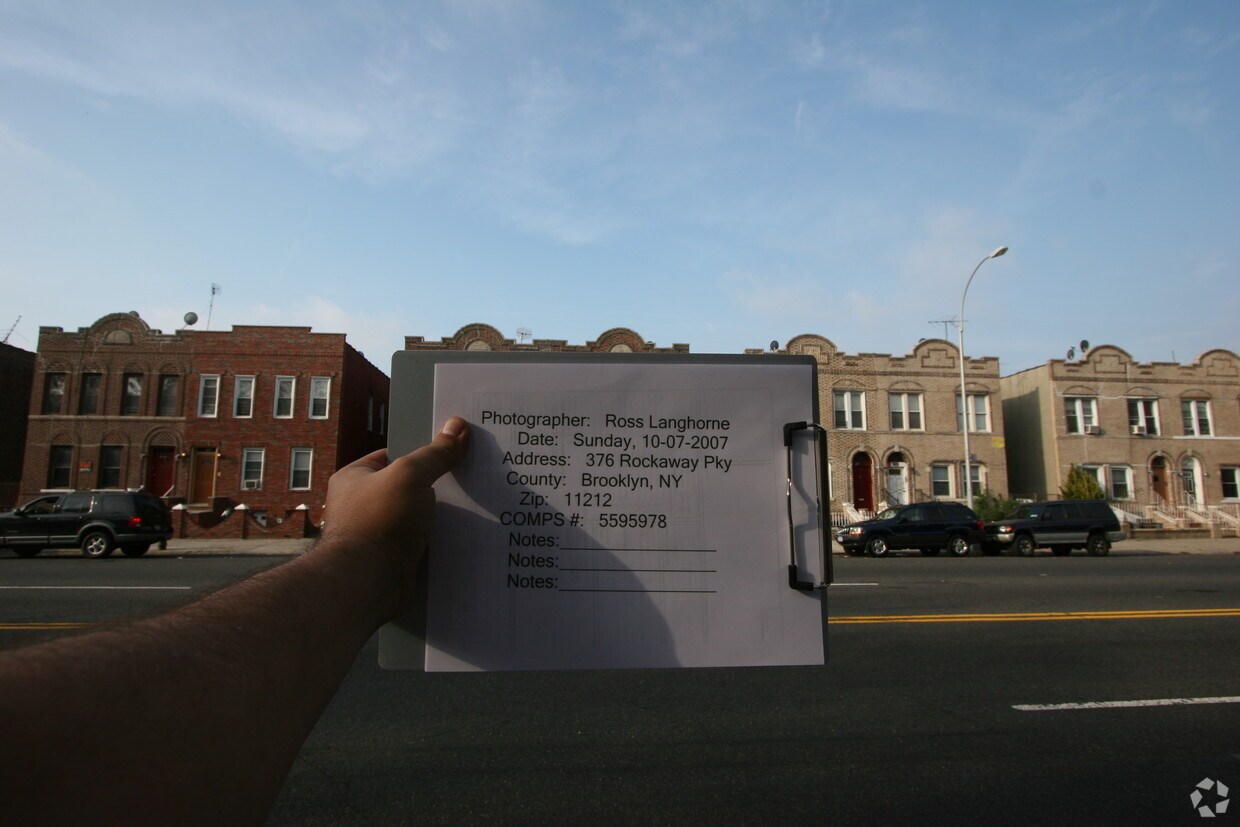 Photographer: Ross Langhorne
Date: Sunday, 10-07-2007
Address: 376 Rockaway Pky
County: Brooklyn, NY
Zip: 11212
COMPS #: 5595978
Notes:
Notes:
Notes: